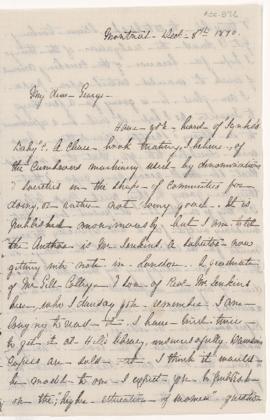 Montreal - Dec - 8th 1870.
My dear George -
Have you heard of Ginx's
Baby? A clever book treating, I believe, of
the Cumbrous machinery used by denominations
& societies in the shape of Committees for
doing, or rather not doing good. It is
published anonymously but I am told
the Author is Mr Jenkins. A Solicitor now
getting into note in London. A graduate
of McGill College & son of Revd Mr Jenkins
here, who I dare say you remember. I am
longing to read it. I have tried twice
to get it at Hill's Library, unsuccessfully.
copies are sold - I think it would
be model to one I expect you to publish
on the "higher education of women" question